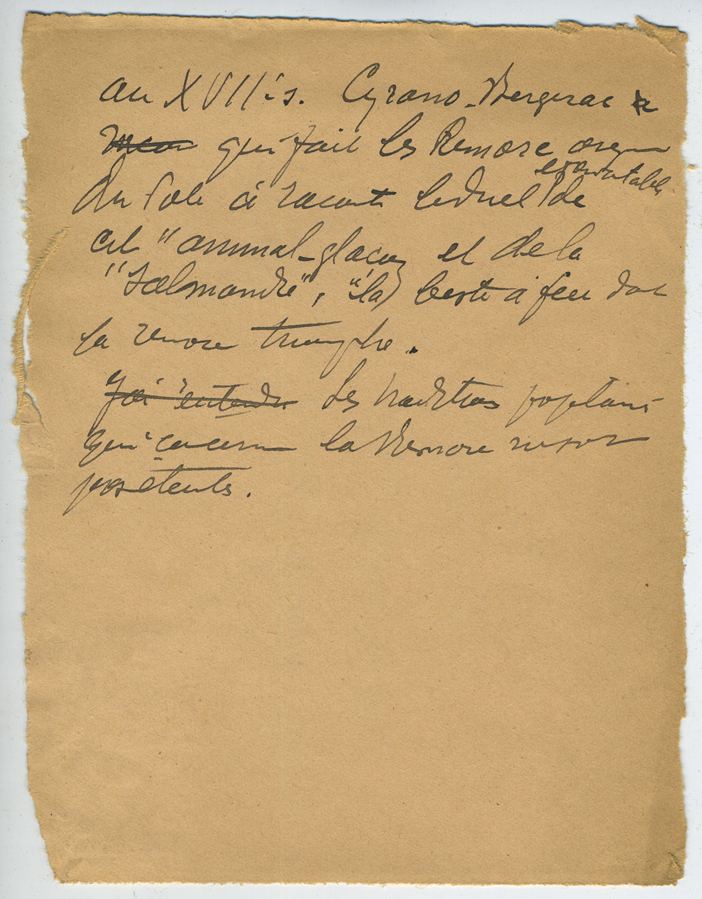 au XVII è s. Cyrano-Bergerac
qui fait les Remore
épouvantable
du Pole a raconté le duel de
cet "animal-glaçon et de la
"Salamandre", "la beste à feu dont
la remore triomphe.
J'ai entendu Les traditions populaires
qui concernent la Remore nous sont
persistentes.